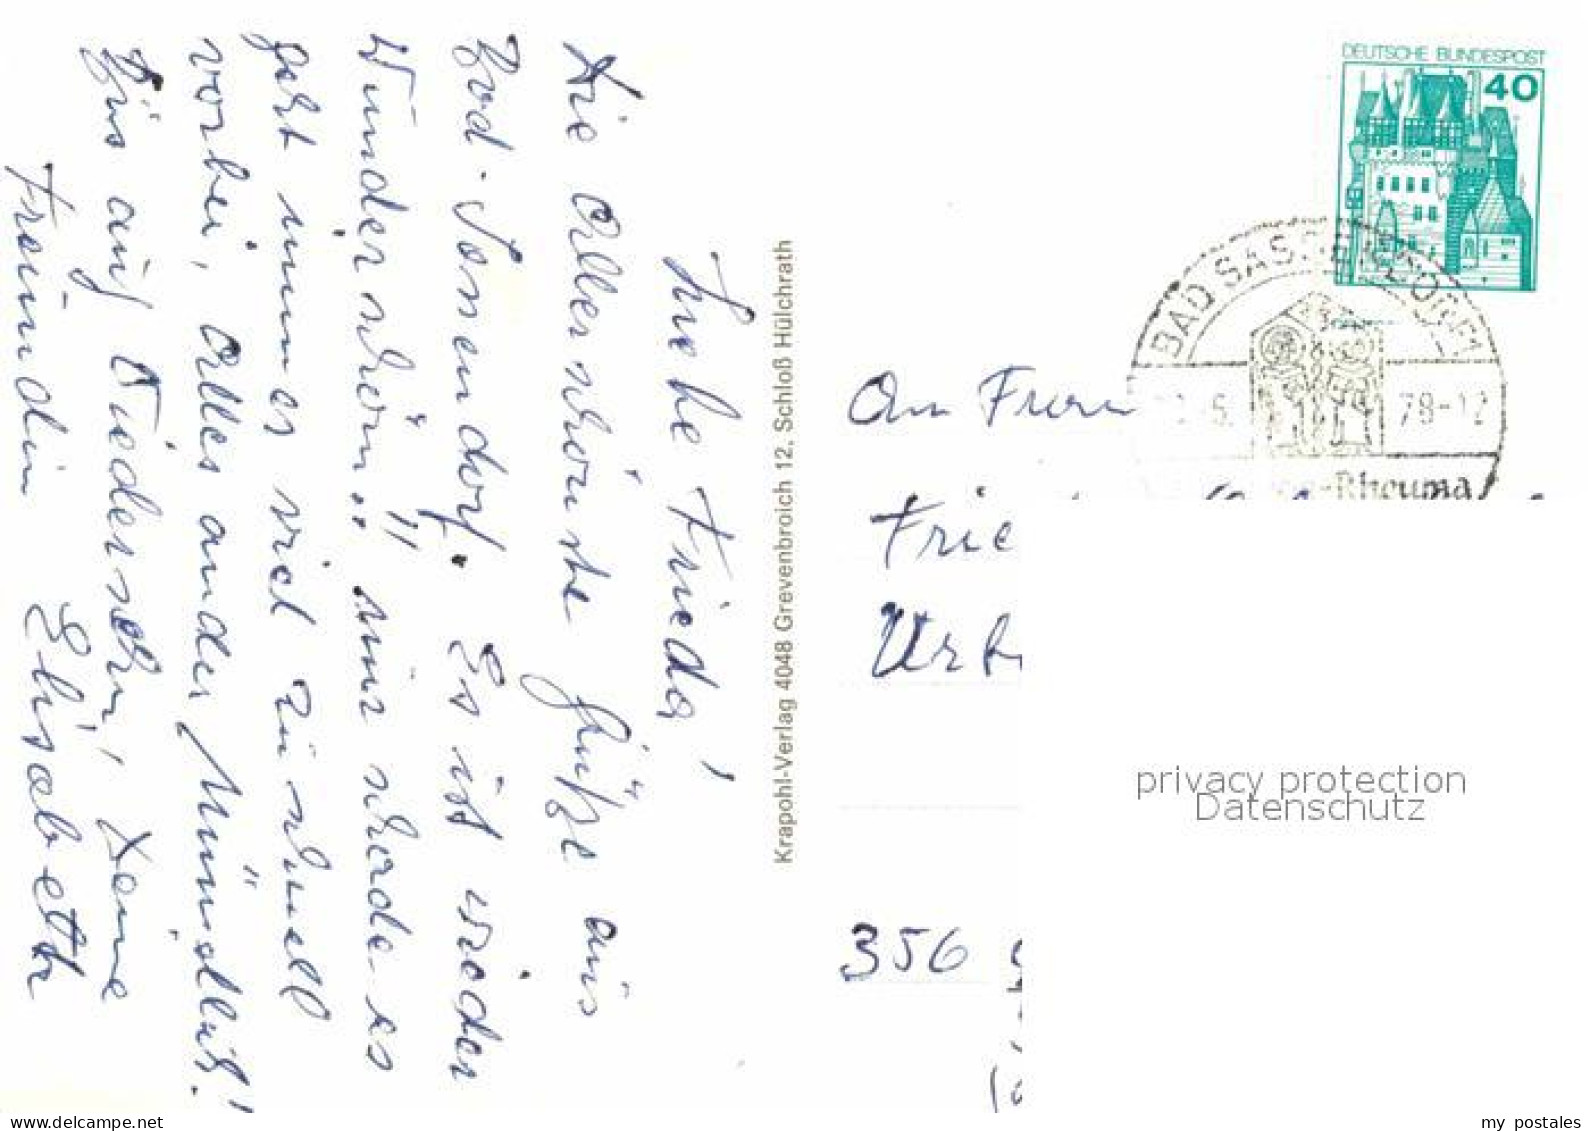 Liebe Frieda!
Die Allerschönste Grüße aus
Bad-Sassendorf. Es ist wieder
Wunderschön!! nur schade es
geht immer viel zu schnell
vorbei, Alles ander Mündlich!
Bis auf Wiedersehn, Deine
Freundin Elisabeth
Krapohl-Verlag 4048 Grevenbroich 12. Schloß Hülchrath
DEUTSCHE BUNDESPOST
40
BAD SASSENDORF
78-12
-Rheuma
An Frau
Frie
Urb
356
privacy protection
Datenschutz
www.delcampe.net
my_postales